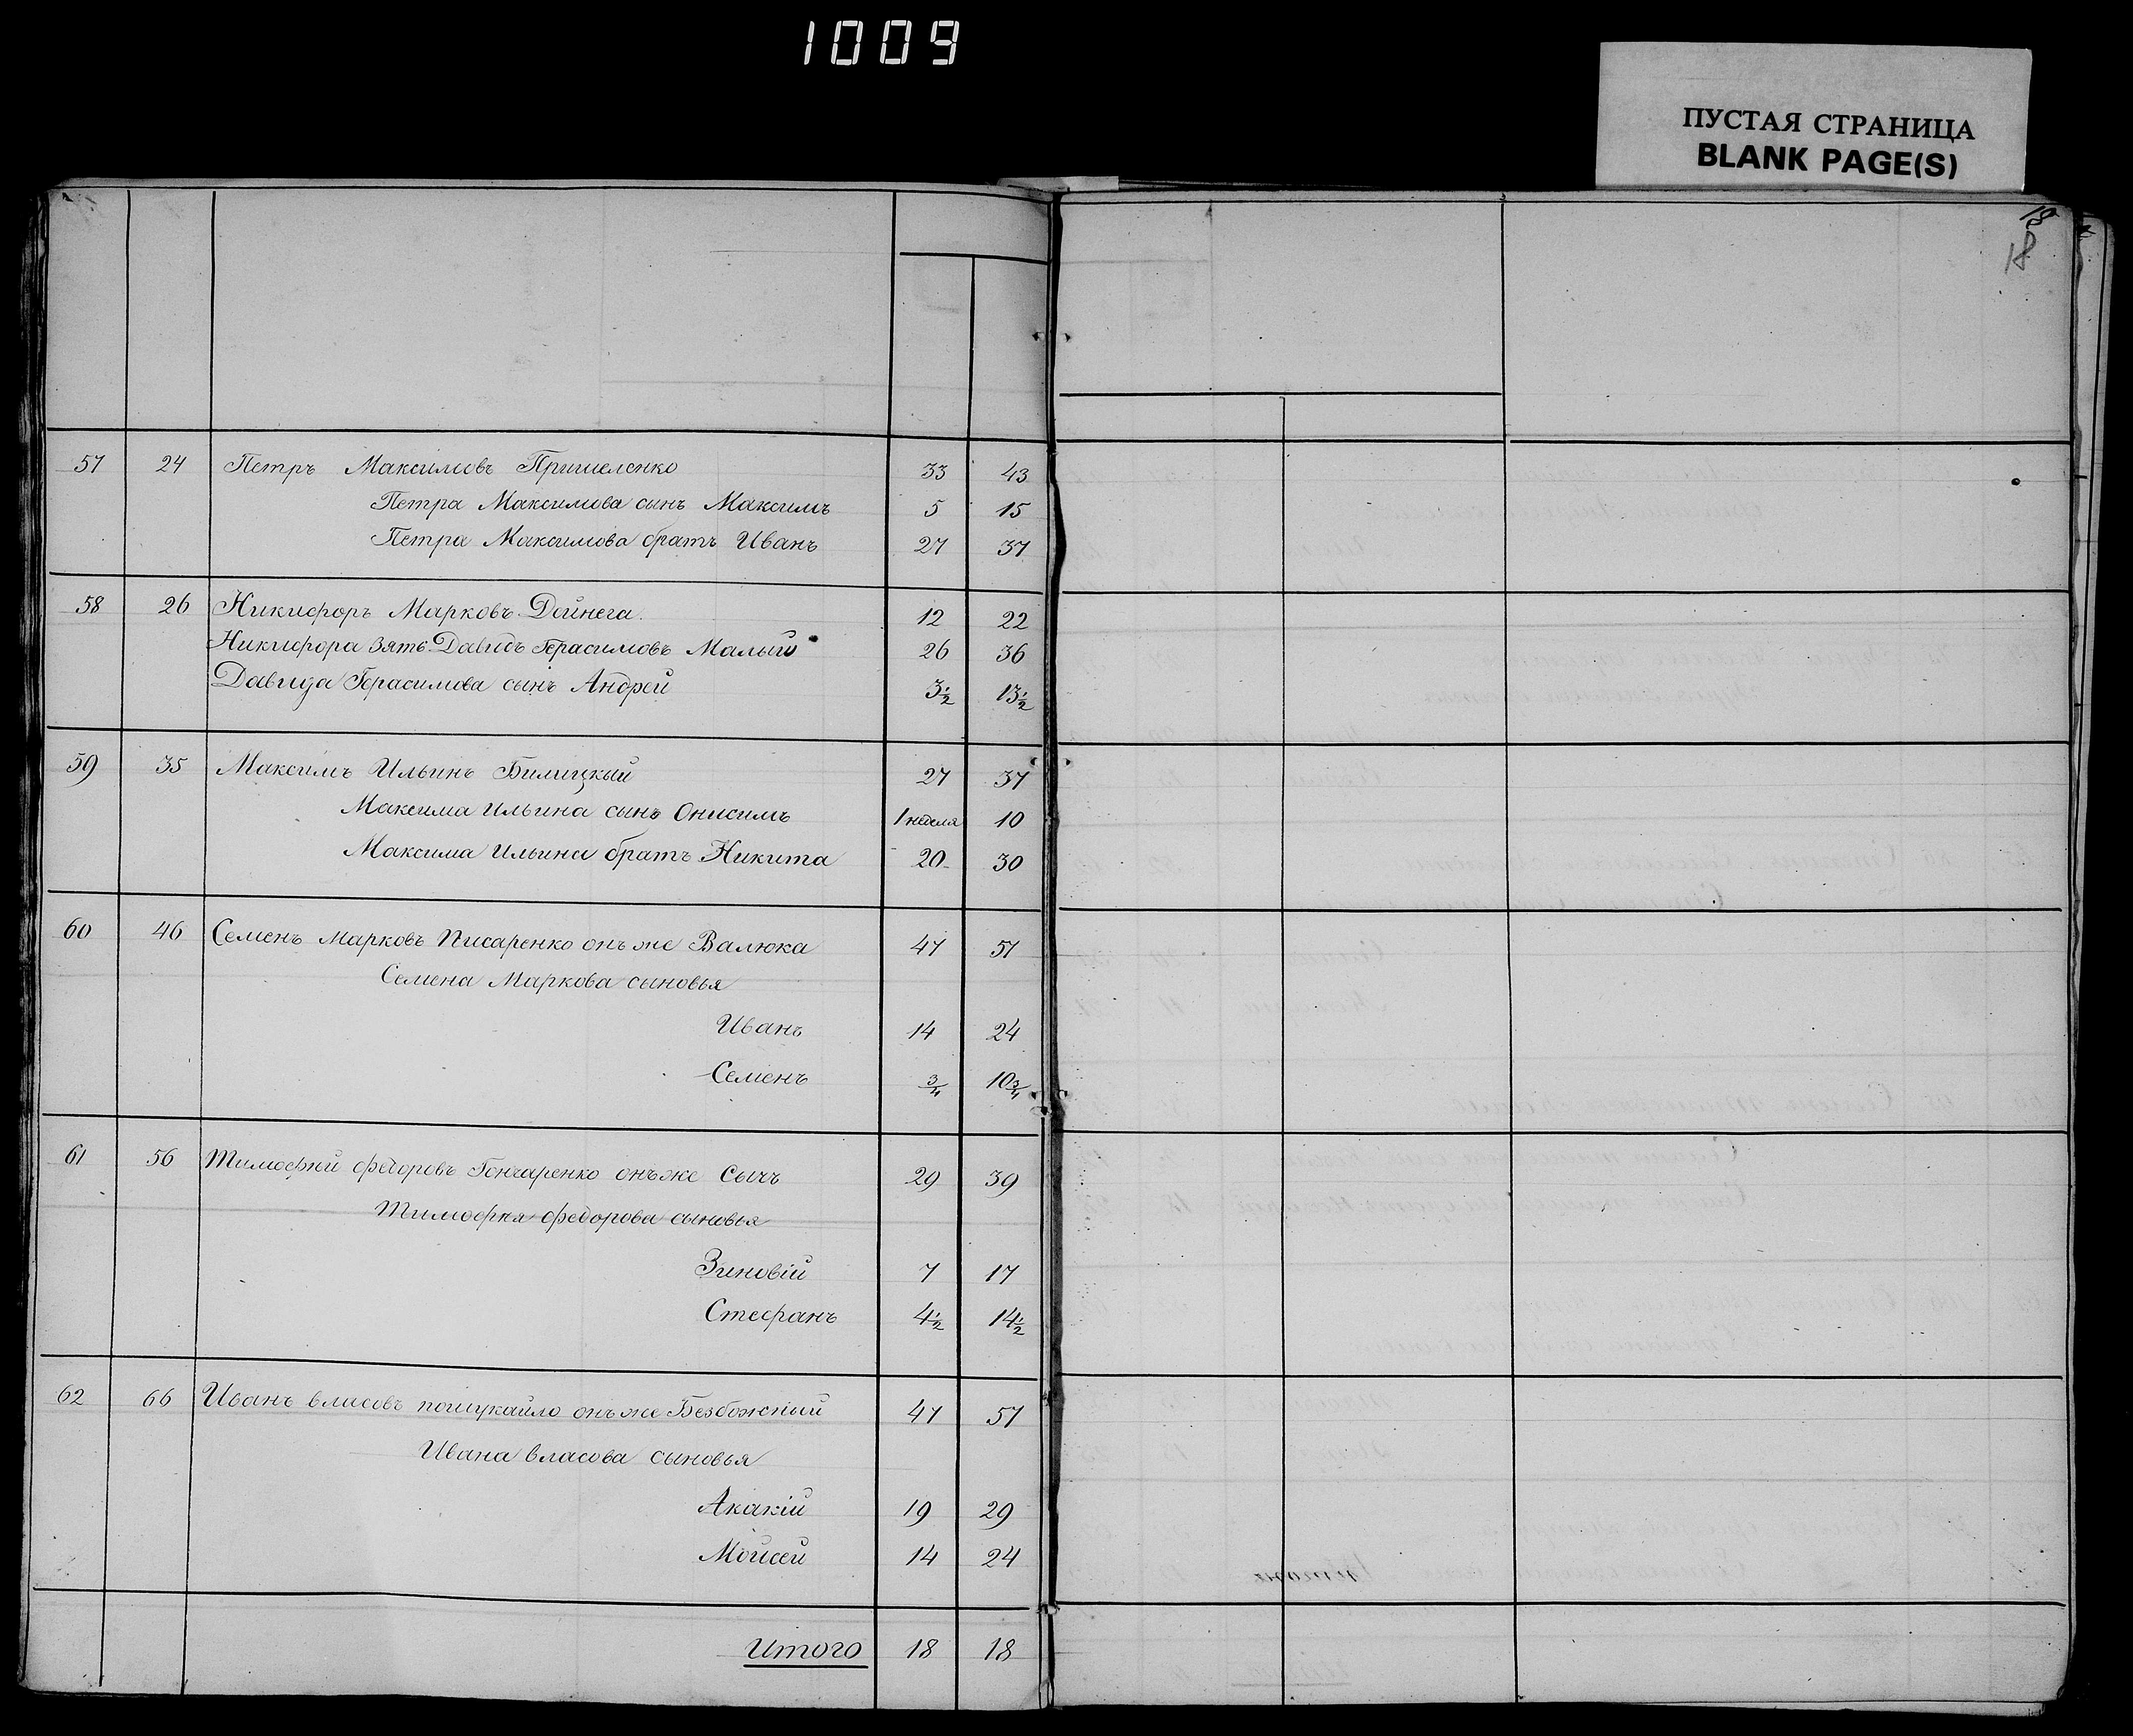 1009
ПУСТАЯ СТРАНИЦА
BLANK PAGE(S)
18
18
57 24 Петръ Максимовъ Пришеленко 33 43
Петра Максимова сынъ Максимъ 5 15
Петра Максимова братъ Иванъ 27 37
58 26 Никифоръ Марковъ Дойнега. 12 22
Никифора зять Давидъ Герасимовъ Малый 26 36
Давида Герасимова сынъ Андрей 3½ 13½
59 35 Максимъ Ильинъ Билицкый 27 37
Максима Ильина сынъ Онисимъ 1 неделя 10
Максима Ильина братъ Никита 20 30
60 46 Семенъ Марковъ Писаренко онъ же Валюка 47 57
Семена Маркова сыновья
Иванъ 14 24
Семенъ ¾ 10¾
61 56 Тимофей Федоровъ Гончаренко онъ же Сычъ 29 39
Тимофея Федорова сыновья
Зиновій 7 17
Стефанъ 4½ 14½
62 66 Иванъ Власовъ Пошукайло онъ же Безбожный 47 57
Ивана Власова сыновья
Акакій 19 29
Мойсей 14 24
Итого 18 18